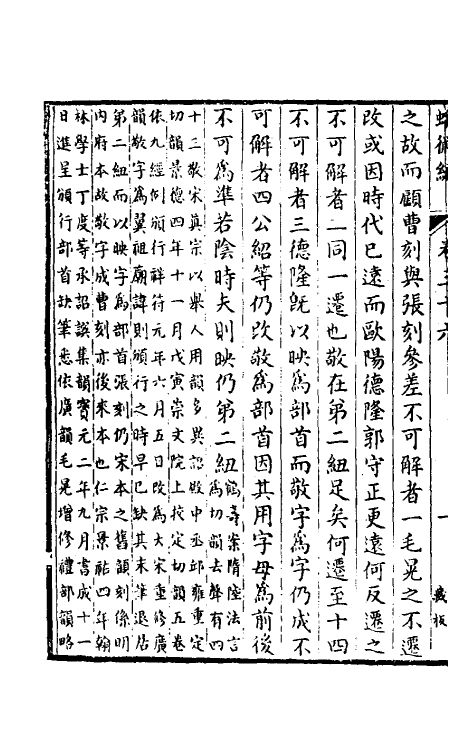 蛾術編 卷三十六 一 藏板
之故而顧曹刻與張刻參差不可解者一毛晃之不遷
改或因時代已遠而歐陽德隆郭守正更遠何反遷之
不可解者二同一遷也敬在第二紐足矣何遷至十四
不可解者三德隆旣以映爲部首而敬字爲字仍成不
可解者四公紹等仍改敬爲部首因其用字母爲前後
不可爲準若陰時夫則映仍第二紐
鶴壽案隋陸法言
爲切韻去聲有四
十三敬宋眞宗以舉人用韻多異詔殿中丞邱雍重定
切韻景德四年十一月戊寅崇文院上挍定切韻五卷
依九經例頒行祥符元年六月五日改爲大宋重修廣
韻敬字爲翼祖廟諱則頒行之時早已缺其末筆退居
第二紐而以映字爲部首張刻仍宋本之舊顧刻係明
內府本故敬字成曹刻亦後來本也仁宗景祐四年翰
林學士丁度等承詔譔集韻寶元二年九月書成十一
日進呈頒行部首缺筆悉依廣韻毛晃增修禮部韻略